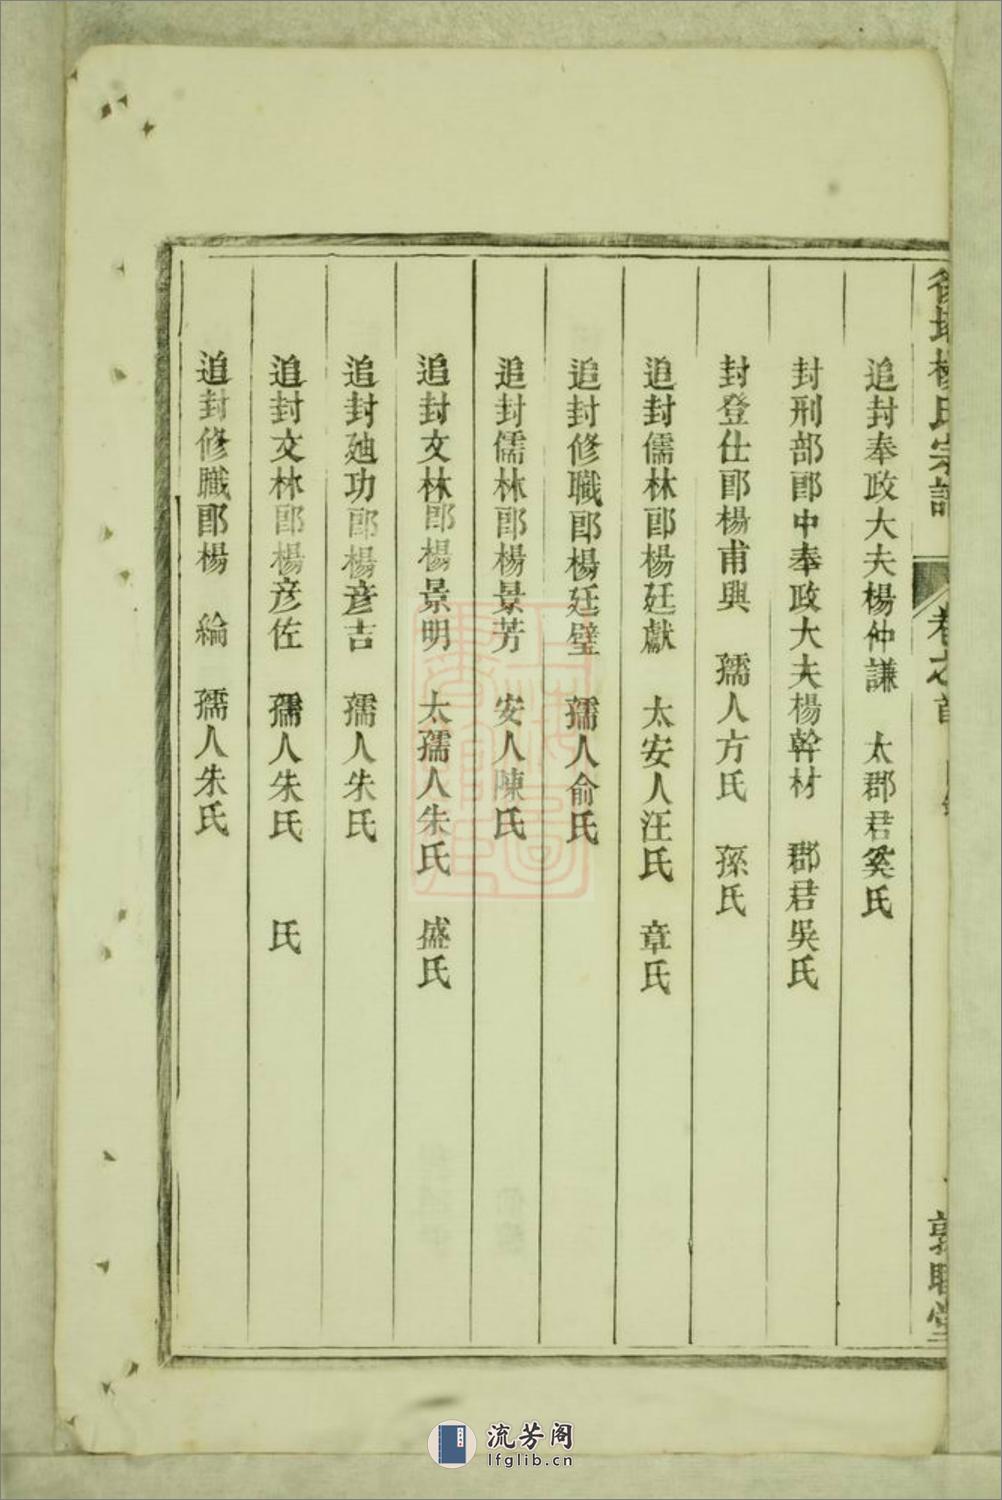 楊氏宗譜 卷之首
追封奉政大夫楊仲謙 太郡君奚氏
封刑部郎中奉政大夫楊幹材 郡君吳氏
封登仕郎楊甫興 孺人方氏 孫氏
追封儒林郎楊廷獻 太安人汪氏 章氏
追封修職郎楊廷璧 孺人俞氏
追封儒林郎楊景芳 安人陳氏
追封文林郎楊景明 太孺人朱氏 盛氏
追封廸功郎楊彥吉 孺人朱氏
追封文林郎楊彥佐 孺人朱氏 氏
追封修職郎楊 綸 孺人朱氏
流芳阁
lfglib.cn